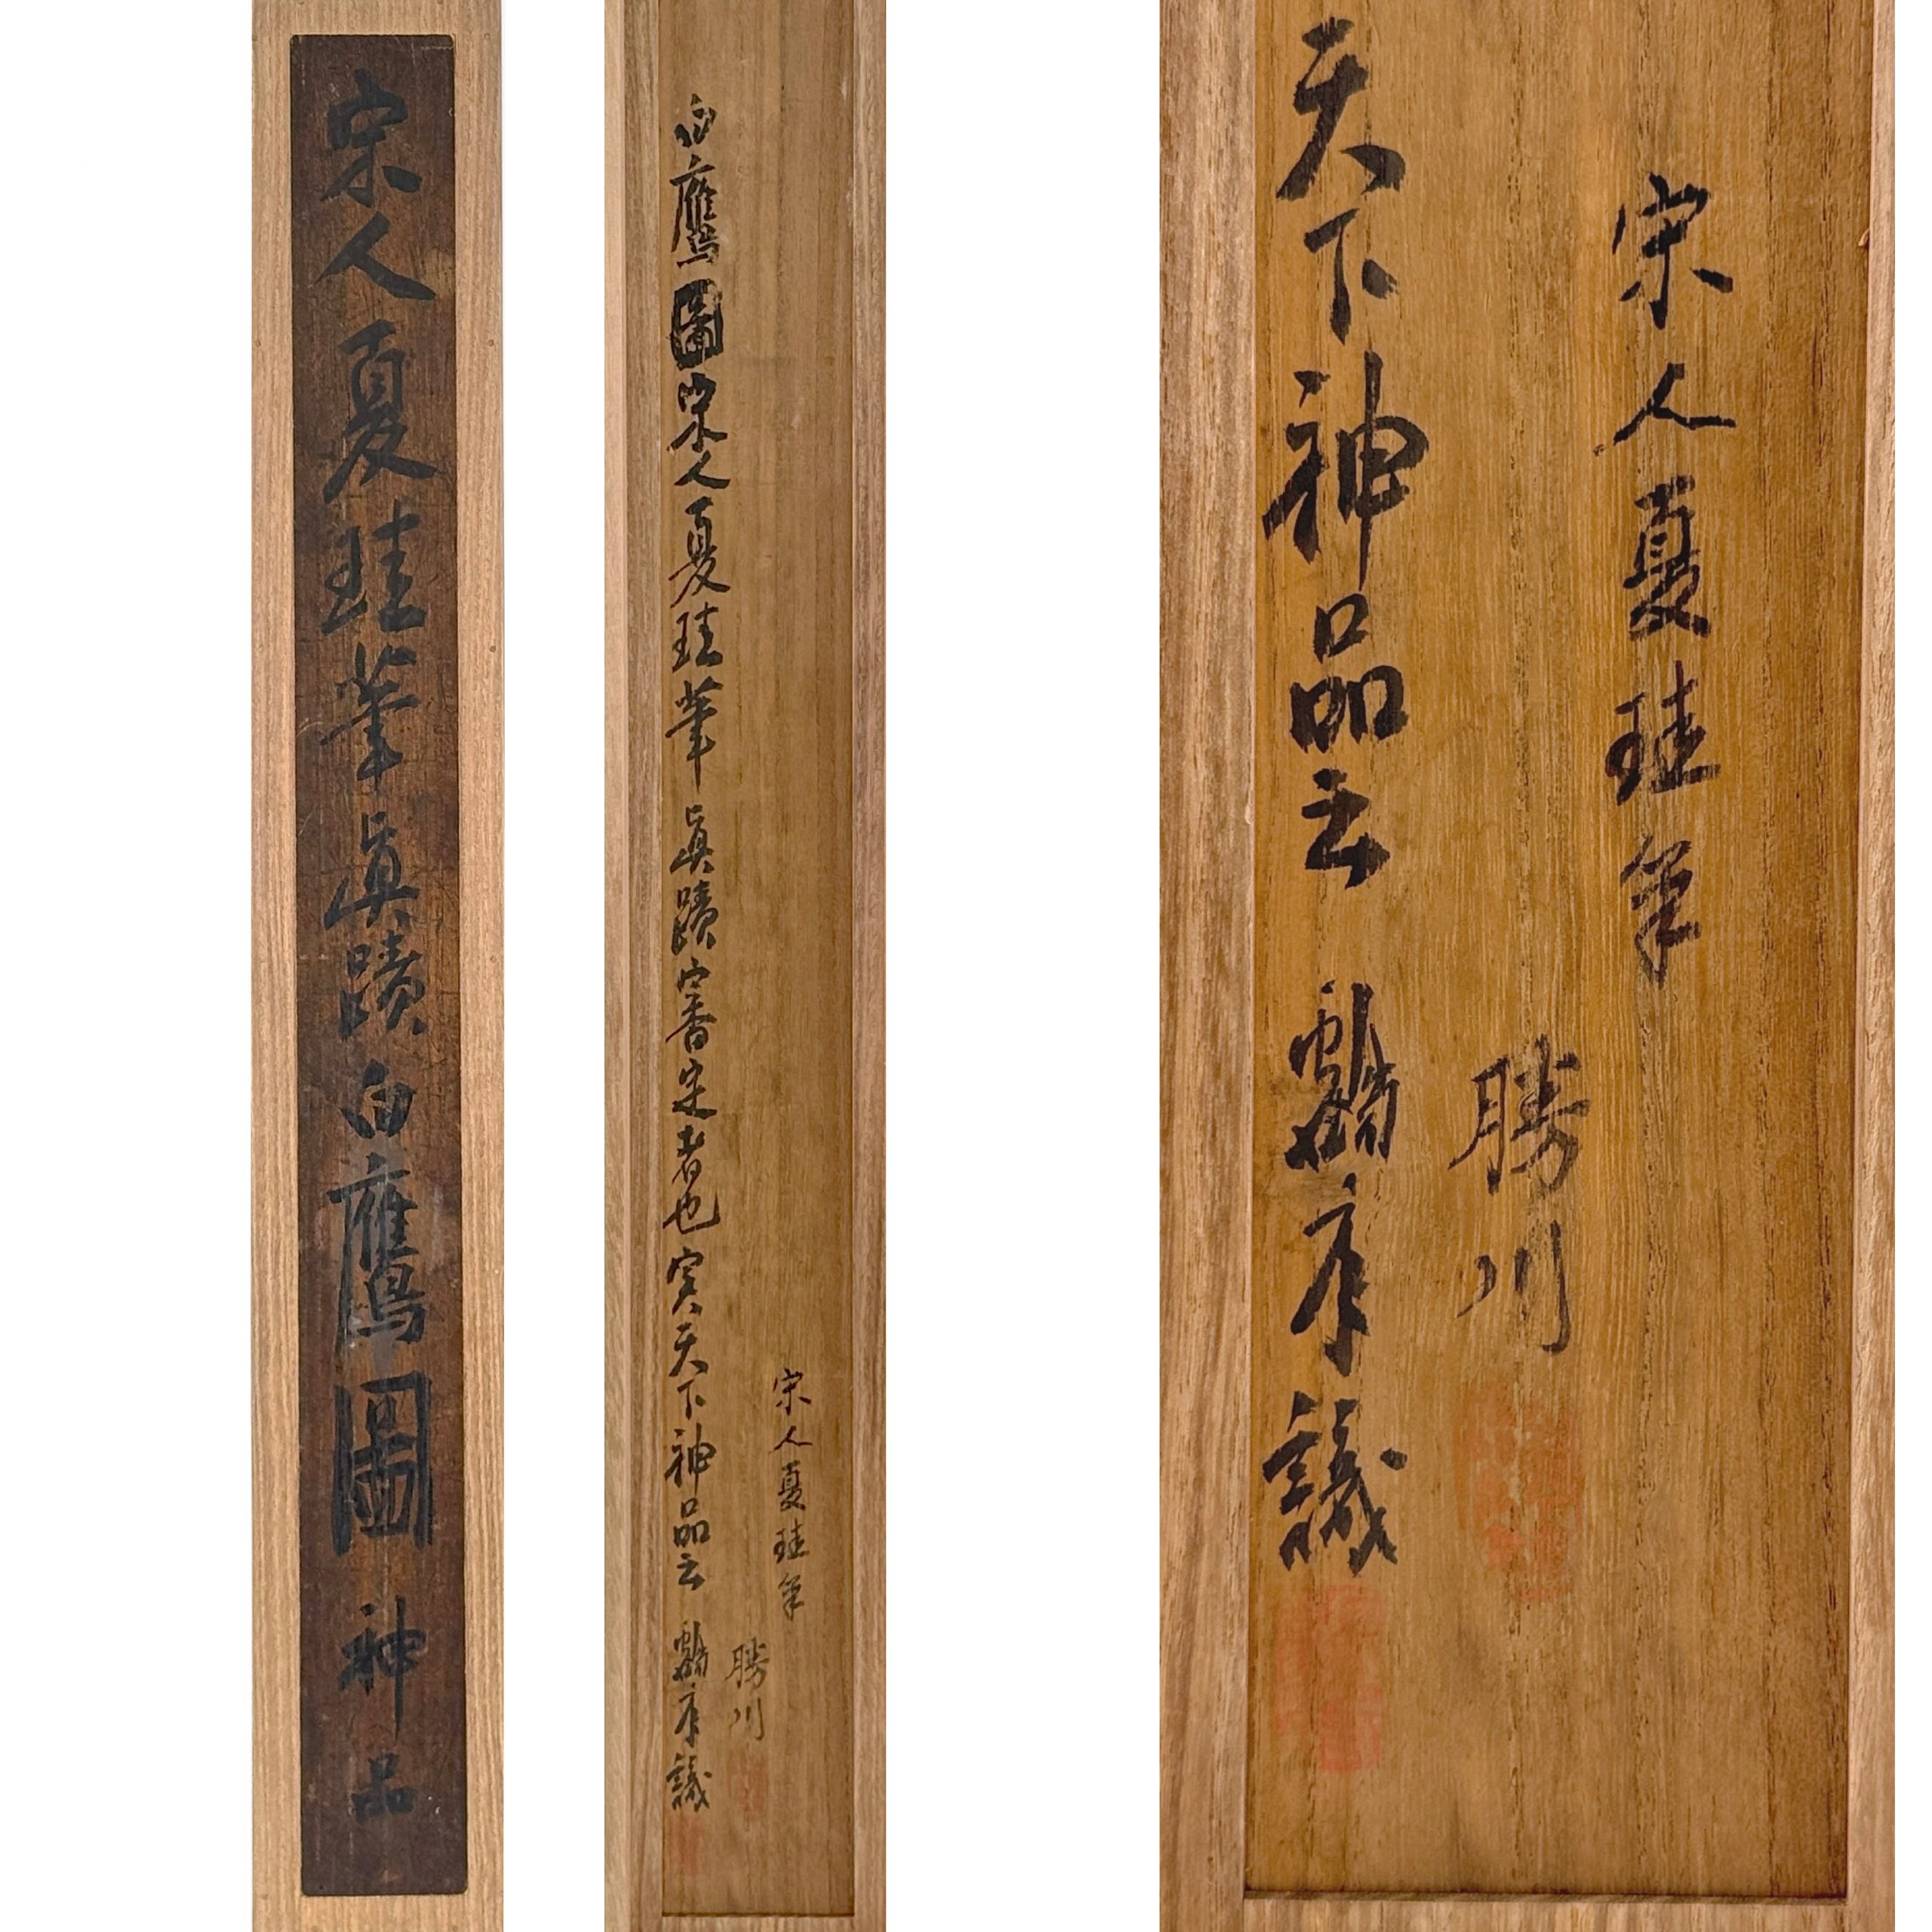 宋人夏珪筆眞蹟白鷹圖神品
宋人夏珪筆
勝川
白鷹圖宋人夏珪筆眞蹟審定者也実天下神品云 識
宋人夏珪筆
勝川
天下神品云 識